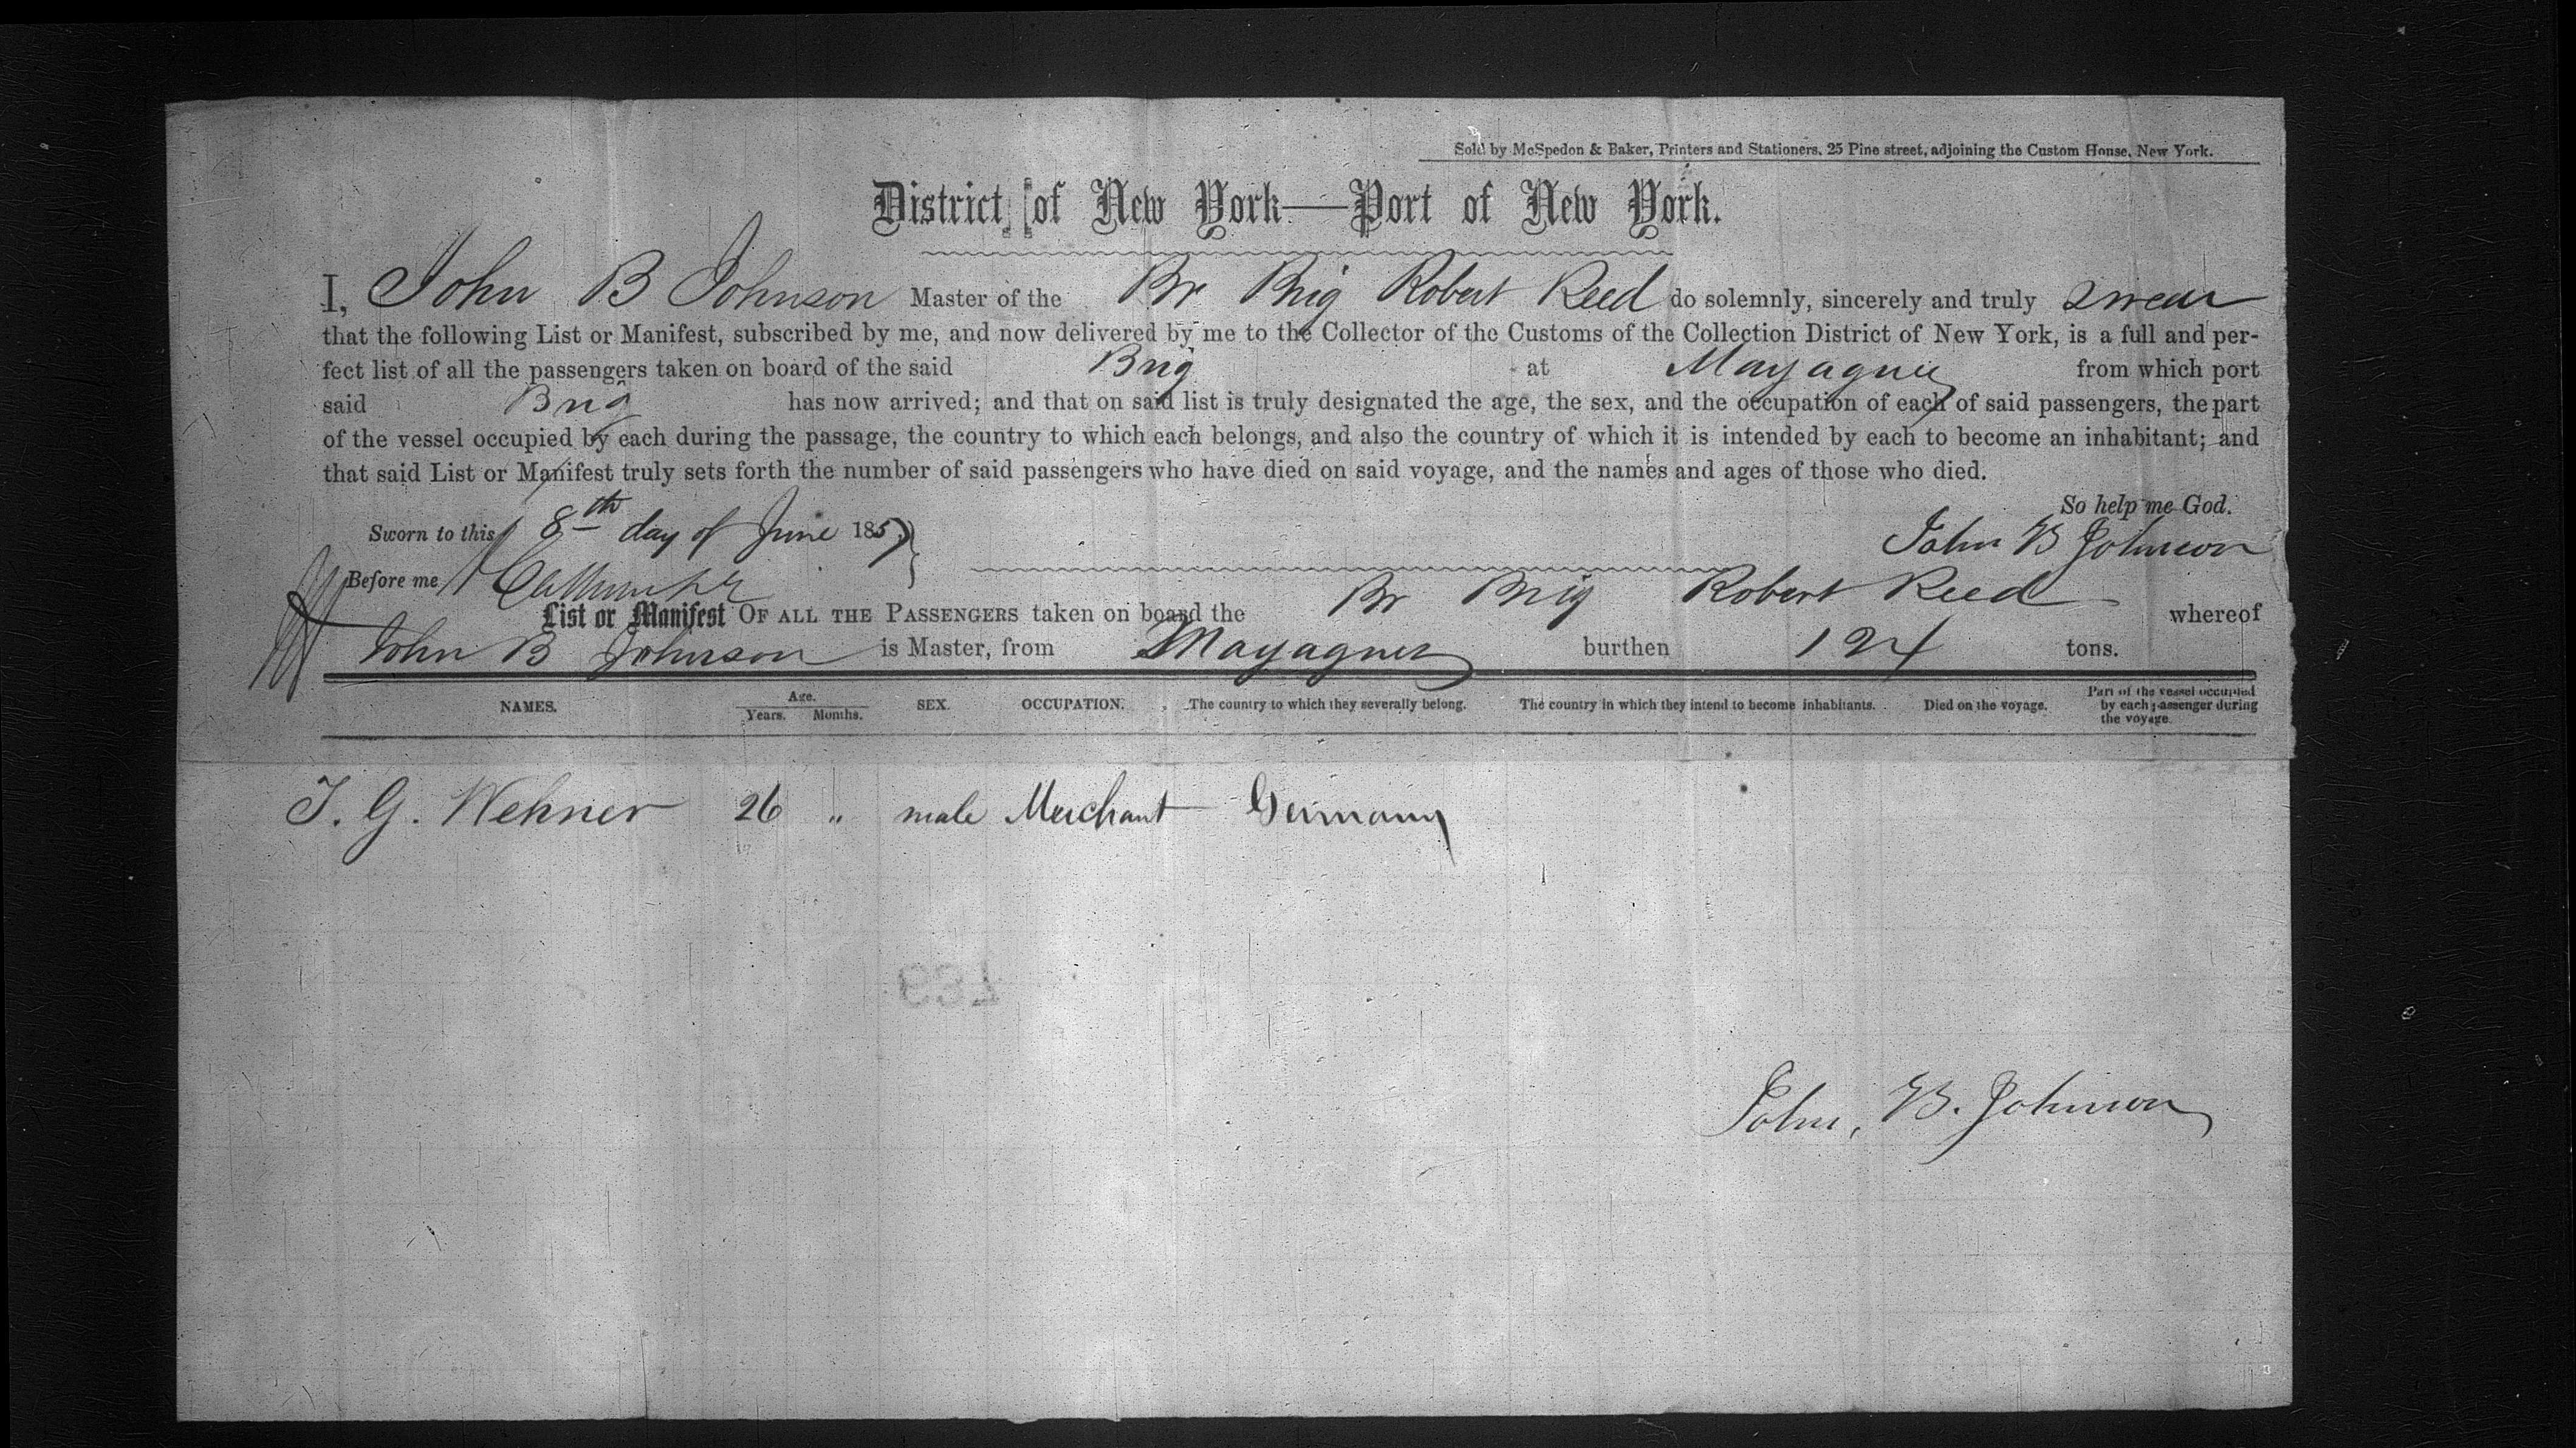 Sold by McSpedon & Baker, Printers and Stationers, 25 Pine street, adjoining the Custom House, New York.
District of New York—Port of New York.
I, John B Johnson Master of the Br Brig Robert Reed do solemnly, sincerely and truly swear
that the following List or Manifest, subscribed by me, and now delivered by me to the Collector of the Customs of the Collection District of New York, is a full and per-
fect list of all the passengers taken on board of the said Brig at Mayaguez from which port
said Brig has now arrived; and that on said list is truly designated the age, the sex, and the occupation of each of said passengers, the part
of the vessel occupied by each during the passage, the country to which each belongs, and also the country of which it is intended by each to become an inhabitant; and
that said List or Manifest truly sets forth the number of said passengers who have died on said voyage, and the names and ages of those who died.
So help me God.
Sworn to this 8th day of June 185 John B Johnson
Before me
List or Manifest OF ALL THE PASSENGERS taken on board the Br Brig Robert Reed whereof
John B Johnson is Master, from Mayaguez burthen 124 tons.
NAMES. Age. Years. Months. SEX. OCCUPATION. The country to which they severally belong. The country in which they intend to become inhabitants. Died on the voyage. Part of the vessel occupied by each passenger during the voyage.
J. G. Wehner 26 " male Merchant Germany
John, B. Johnson